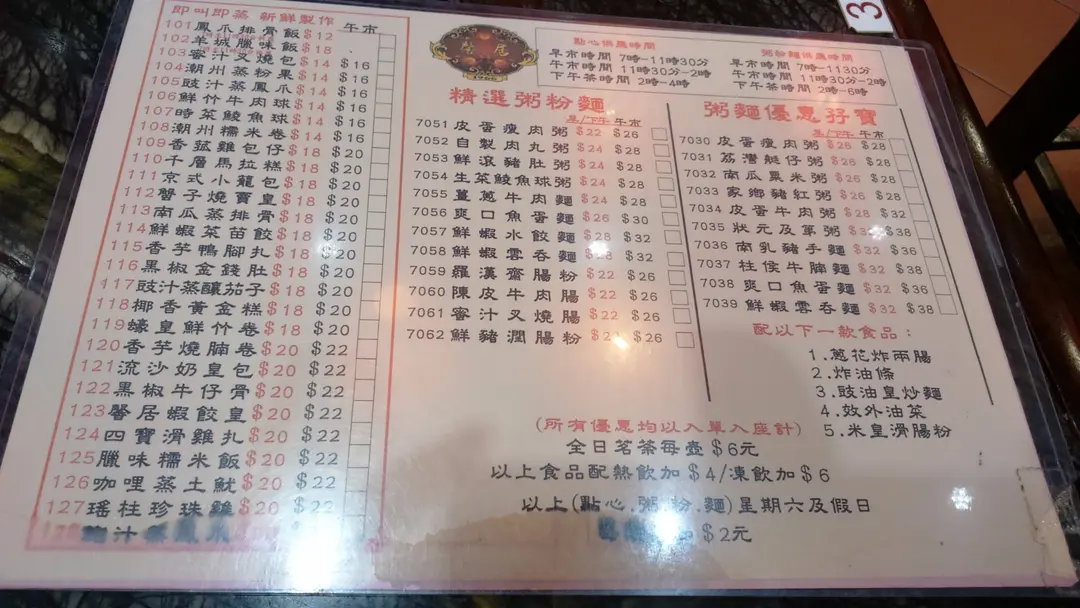 即叫即蒸 新鮮製作
午市
101鳳爪排骨飯$12
102羊城臘味飯$18
103蜜汁叉燒包$14 $16
104潮州蒸粉果$14 $16
105豉汁蒸鳳爪$14 $16
106鮮竹牛肉球$14 $16
107時菜鯪魚球$14 $16
108潮州糯米卷$14 $16
109香菇雞包仔$18 $20
110千層馬拉糕$18 $20
111京式小籠包$18 $20
112蟹子燒賣皇$18 $20
113南瓜蒸排骨$18 $20
114鮮蝦菜苗餃$18 $20
115香芋鴨腳扎$18 $20
116黑椒金錢肚$18 $20
117豉汁蒸釀茄子$18 $20
118椰香黃金糕$18 $20
119蠔皇鮮竹卷$18 $20
120香芋燒腩卷$20 $22
121流沙奶皇包$20 $22
122黑椒牛仔骨$20 $22
123馨居蝦餃皇$20 $22
124四寶滑雞扎$20 $22
125臘味糯米飯$20 $22
126咖哩蒸土魷$20 $22
127瑤柱珍珠雞$20 $22
馨居
點心供應時間
早市時間 7時-11時30分
午市時間 11時30分-2時
下午茶時間 2時-4時
粥粉麵供應時間
早市時間 7時-1130分
午市時間 11時30分-2時
下午茶時間 2時-6時
3
精選粥粉麵
早/下午 午市
7051 皮蛋瘦肉粥 $22 $26
7052 自製肉丸粥 $24 $28
7053 鮮滾豬肚粥 $24 $28
7054 生菜鯪魚球粥 $24 $28
7055 薑蔥牛肉麵 $24 $28
7056 爽口魚蛋麵 $26 $30
7057 鮮蝦水餃麵 $28 $32
7058 鮮蝦雲吞麵 $32
7059 羅漢齋腸粉 $22 $26
7060 陳皮牛肉腸 $22 $26
7061 蜜汁叉燒腸 $22 $26
7062 鮮豬潤腸粉 $26
粥麵優惠孖寶
早/下午 午市
7030 皮蛋瘦肉粥 $26 $28
7031 荔灣艇仔粥 $26 $28
7032 南瓜粟米粥 $26 $28
7033 家鄉豬紅粥 $26 $28
7034 皮蛋牛肉粥 $28 $32
7035 狀元及第粥 $38
7036 南乳豬手麵 $32 $36
7037 柱侯牛腩麵 $32 $38
7038 爽口魚蛋麵 $32 $36
7039 鮮蝦雲吞麵 $32 $38
配以下一款食品：
1.蔥花炸兩腸
2.炸油條
3.豉油皇炒麵
4.效外油菜
5.米皇滑腸粉
(所有優惠均以入單入座計)
全日茗茶每壺$6元
以上食品配熱飲加$4/凍飲加$6
以上(點心.粥.粉.麵)星期六及假日
$2元